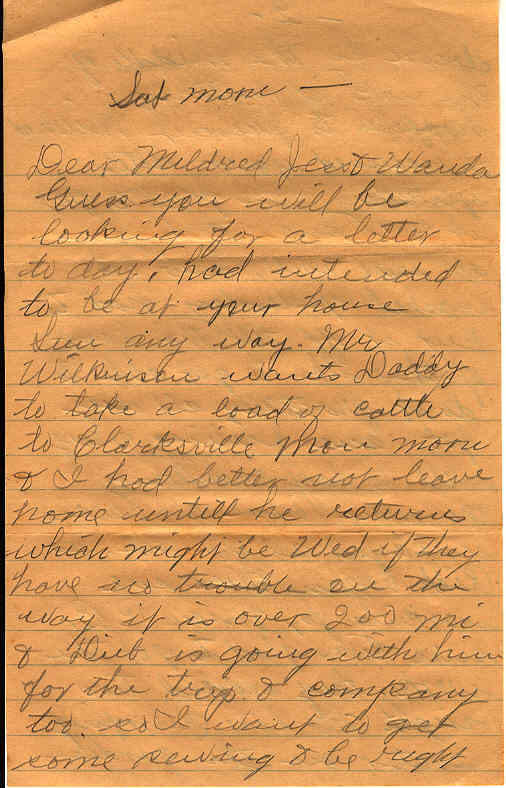 Sat morn —
Dear Mildred Jess & Wanda
Guess you will be
looking for a letter
to day, had intended
to be at your house
Sun any way. Mr
Wilkinson wants Daddy
to take a load of cattle
to Clarksville Mon morn
& I had better not leave
home untill he returns
which might be Wed if they
have no trouble on the
way it is over 200 mi
& Dub is going with him
for the trip & company
too. so I want to get
some sewing & be right